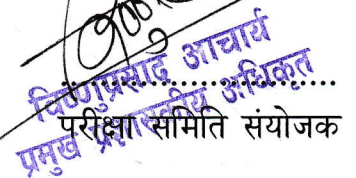 विष्णुप्रसाद आचार्य
प्रमुख प्रशासकीय अधिकृत
....................................
परीक्षा समिति संयोजक